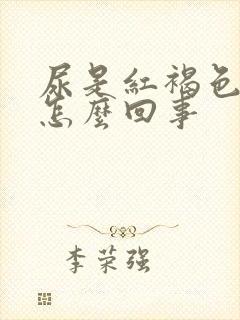 尿是紅褐色
怎麼回事
李荣强